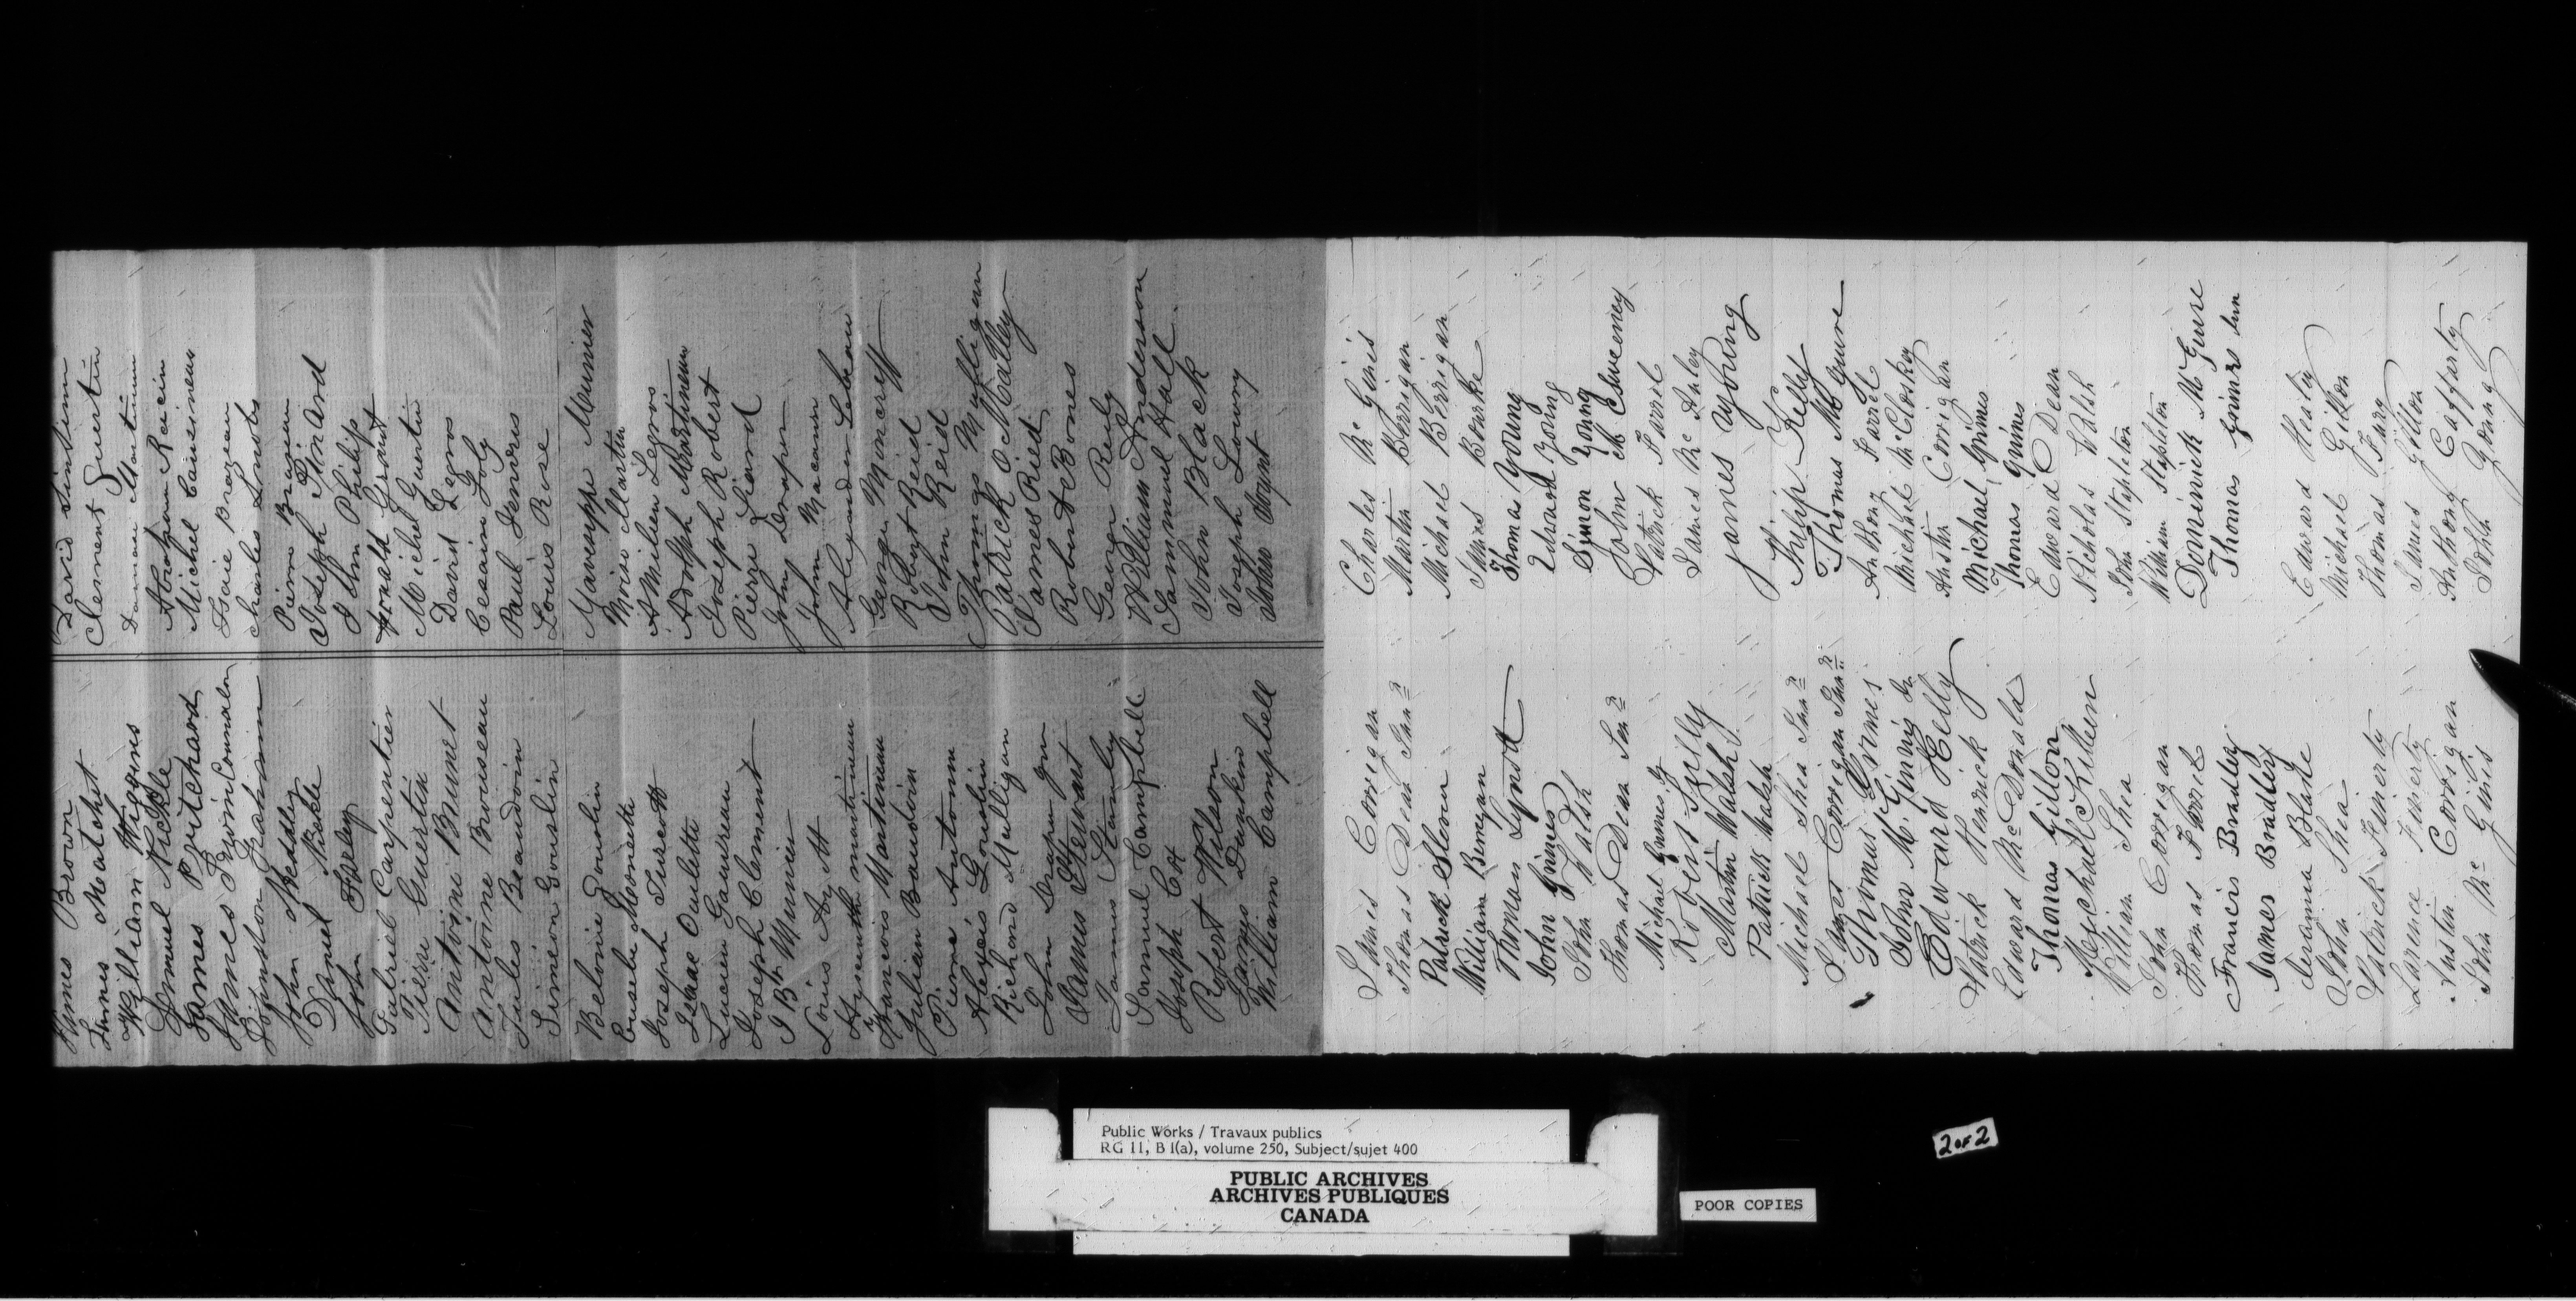 James Brown
James Matchet
William Wiggins
Samuel Nickle
James Pritchard
James Irwin
Johnston Graham
John Meddley
Daniel Nickle
John Farley
Gabriel Carpentier
Pierre Guertin
Antoine Brunet
Antoine Bruiseau
Jules Beaudoin
Simeon Gouslin
Belonie Goudin
Eusebe Monette
Joseph Turcott
Issac Oulette
Lucien Gauvreau
Joseph Clement
J Bte Munier
Louis
Hyacinthe martineau
Francois Martineau
Julian Baudoin
Pierre Antonne
Alexis Gouslin
Richard Mulligan
John Draper jnr
James Stewart
James Stanley
Samuel Campbell
Joseph Cox
Robert Wilson
James Dunkin
William Campbell
David
Clesment Guertin
Damase Martineau
Abraham Racin
Michel Causineau
Isaie Brazeau
charles
Pierre Brazeau
Joseph Pinard
John Philips
Donald Grant
Michel Guertin
David Legros
Cesaire Joly
Paul
Louis Rose
Munier
Moise Martin
Emilien Legros
Adolph Martineau
Joseph Robert
Pierre Siard
John Draper
John Macaun
Alexander Lebeau
George Moncreff
Robert Reid
John Reid
Thomas Mulligan
Patrick O Malley
James Ried
Robert Bones
George Rely
William Anderson
Sammuel Hall
John Black
Joseph Lowry
John
James Corrigan
Thomas Dean Junr
Patrick Slevin
William Finegan
Thomas Lynott
John Grimes
John Walsh
Thomas Dean Senr
Michael Grimes
Robert Kelly
Martin Walsh
Patrick Walsh
Michael Shea Junr
James Corrigan Junr
Thomas Grimes
John Mc Ginnis Jr
Edward Kelly
Patrick Henrick
Edward McDonald
Thomas Gillon
Michael Killeen
William Shea
John Corrigan
Thomas Farrel
Francis Bradley
James Bradley
Jeramia Blake
John Shea
Patrick Finerty
Larence Finerty
Austin Corrigan
John Mc Ginis
Charles Mc Ginis
Martin Berrigan
Michael Berrigan
James Bourke
Thomas Young
Edward Young
Simon Young
John Mc Elsweeney
Patrick Farrel
James Mc Anley
James Young
Philip Kelly
Thomas Mc Guire
Anthony Farrel
Michael McCloskey
Austin Corrigan
Michael Grimes
Thomas Grimes
Edward Dean
Nicholas Walsh
John Stapleton
William Stapleton
Dominick McGuire
Thomas Grimes
Edward Healy
Michael Gillon
Thomas Fury
James Gillon
Anthony Cafferty
John Young
Public Works / Travaux publics
RG 11, B 1(a), volume 250, Subject/sujet 400
PUBLIC ARCHIVES
ARCHIVES PUBLIQUES
CANADA
POOR COPIES
2 OF 2